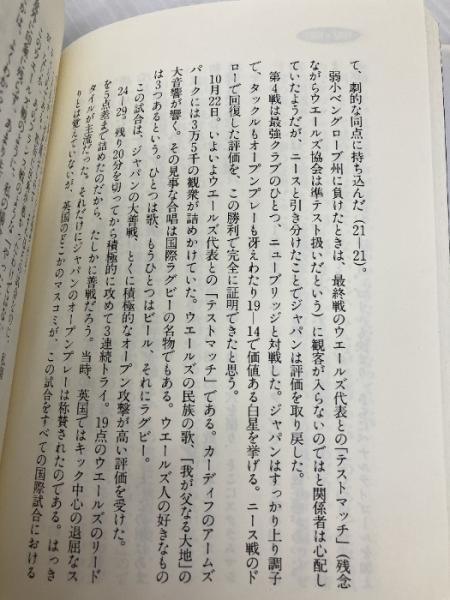 て、劇的な同点に持ち込んだ（21―21）。
弱小ペングローブ州に負けたときは、最終戦のウエールズ代表との「テストマッチ」（残念
ながらウエールズ協会は準テスト扱いだという）に観客が入らないのではと関係者は心配し
ていたようだが、ニースと引き分けたことでジャパンは評価を取り戻した。
第4戦は最強クラブのひとつ、ニューブリッジと対戦した。ジャパンはすっかり上り調子
で、タックルもオープンプレーも冴えわたり19―14で価値ある白星を挙げる。ニース戦のド
ローで回復した評価を、この勝利で完全に証明できたと思う。
10月22日。いよいよウエールズ代表との「テストマッチ」である。カーディフのアームズ
パークには3万5千の観衆が詰めかけていた。ウエールズの民族の歌、「我が父なる大地」の
大音響が響く。その見事な合唱は国際ラグビーの名物でもある。ウエールズ人の好きなもの
は3つあるという。ひとつは歌、もうひとつはビール、それにラグビー。
この試合は、ジャパンの大善戦、とくに積極的なオープン攻撃が高い評価を受けた。
24―29。残り20分を切ってから積極的に攻めて3連続トライ。19点のウエールズのリード
を5点差まで詰めたのだから、たしかに善戦だろう。当時、英国ではキック中心の退屈なス
タイルが主流だった。それだけにジャパンのオープンプレーは称賛されたのである。はっき
りとは覚えていないが、英国のどこかのマスコミが、この試合をすべての国際試合における